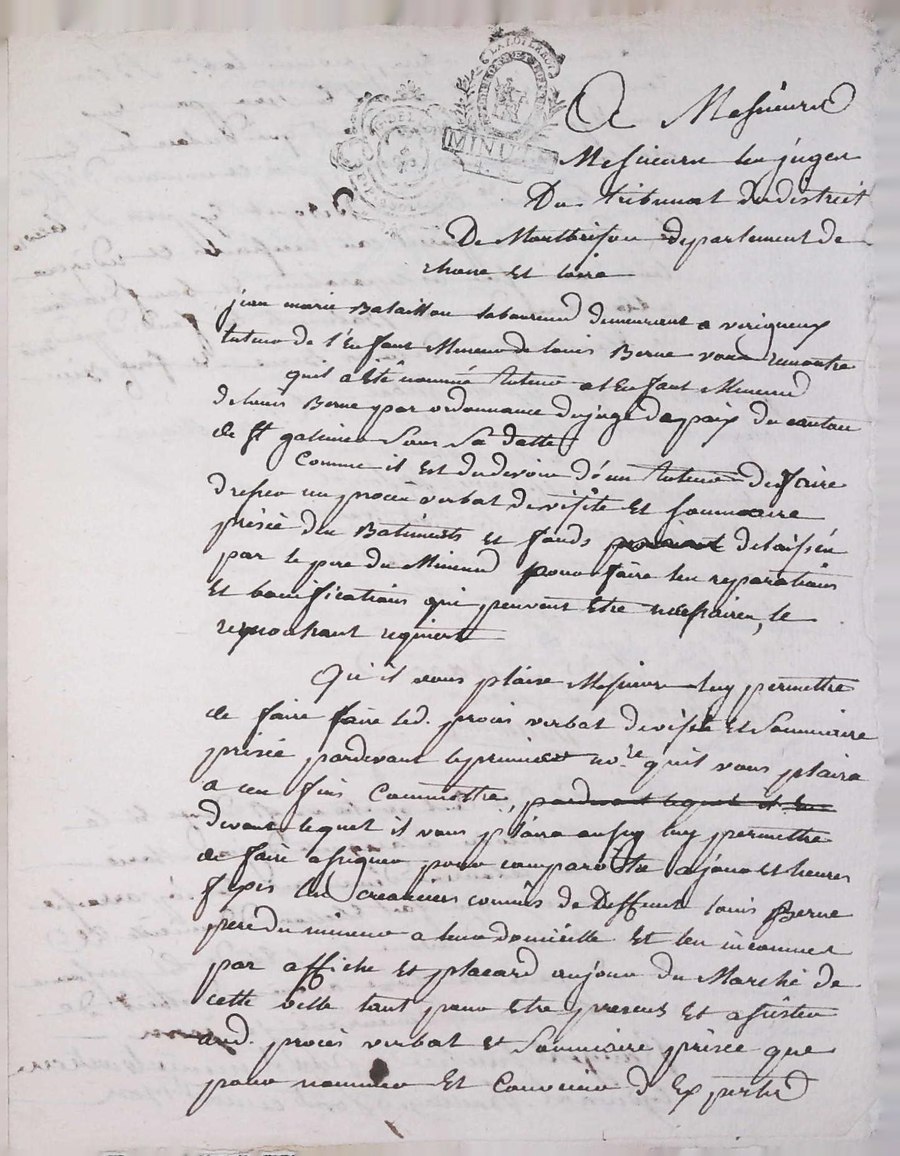 LA LOI LE ROI
MINUTE
A Messieurs
Messieurs les juges
Du tribunal du district
De Montbrison departement de
rhone et loire
jean marie Bataillon laboureur demeurant a verigneux
tuteur de l'Enfant Mineur de louis Berne vous remontre
quil a Eté nommé tuteur a l'Enfant Mineur
de louis Berne par ordonnance du juge de paix du canton
de st galmier sous sa datte
Comme il est du devoir d'un tuteur de faire
dresser un procès verbal de visite et sommaire
prisée des Batiments et fonds delaissés
par le pere du Mineur pour faire les reparations
Et bonifications qui peuvent Etre necessaires, le
remontrant requiert
Qu'il vous plaise Messieurs luy permettre
de faire faire led. procès verbal de visite et Sommaire
prisée pardevant le premier nore quil vous plaira
a ces fins Commettre, pardevant lequel et les
devant lequel il vous plaira aussy luy permettre
de faire assigner pour comparoitre a jour et heures
fixes les créanciers connus de Deffunt louis Berne
pere du mineur a leurs domicille Et les inconnus
par affiche et placard au jour du Marché de
cette ville tant pour Etre presents Et assister
aud. procès verbal et Sommaire prisée que
pour nommer Et Convenir d'Experts